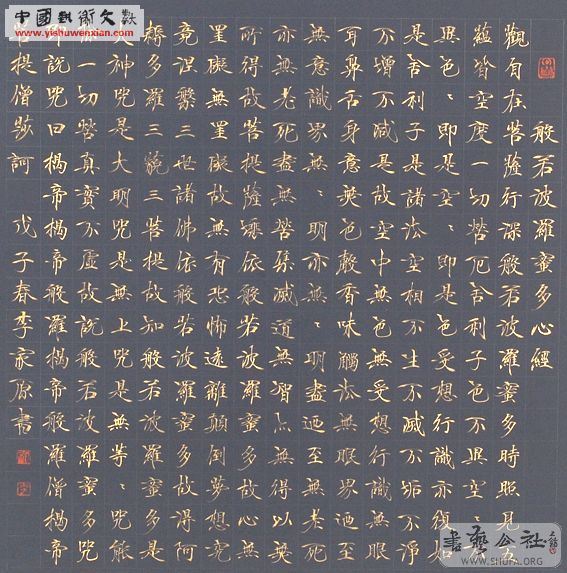 中國藝術文獻
www.yishuwenxian.com
般若波羅蜜多心經
觀自在菩薩行深般若波羅蜜多時照見五
蘊皆空度一切苦厄舍利子色不異空〻
異色〻即是空〻即是色受想行識亦復如
是舍利子是諸法空相不生不滅不垢不淨
不增不減是故空中無色無受想行識無眼
耳鼻舌身意無色聲香味觸法無眼界迺至
無意識界無〻明亦無〻明盡迺至無老死
亦無老死盡無苦集滅道無智亦無得以無
所得故菩提薩埵依般若波羅蜜多故心無
罣礙無罣礙故無有恐怖遠離顛倒夢想究
竟涅槃三世諸佛依般若波羅蜜多故得阿
耨多羅三藐三菩提故知般若波羅蜜多是
大神咒是大明咒是無上咒是無等〻咒能
除一切苦真實不虛故說般若波羅蜜多咒
即說咒曰揭帝揭帝般羅揭帝般羅僧揭帝
菩提僧莎訶 戊子春李家原書
書藝公社
WWW.SHUFA.ORG